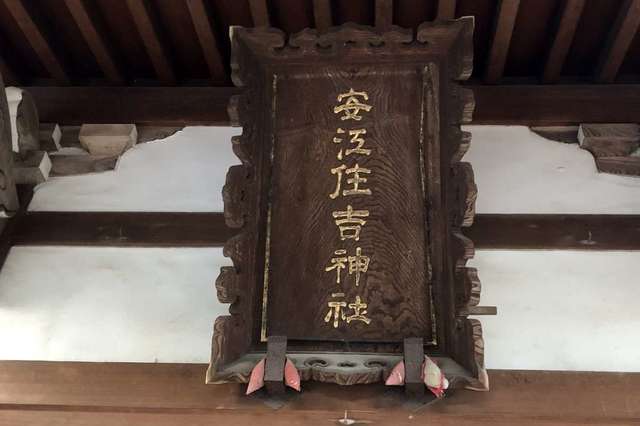 安江住吉神社